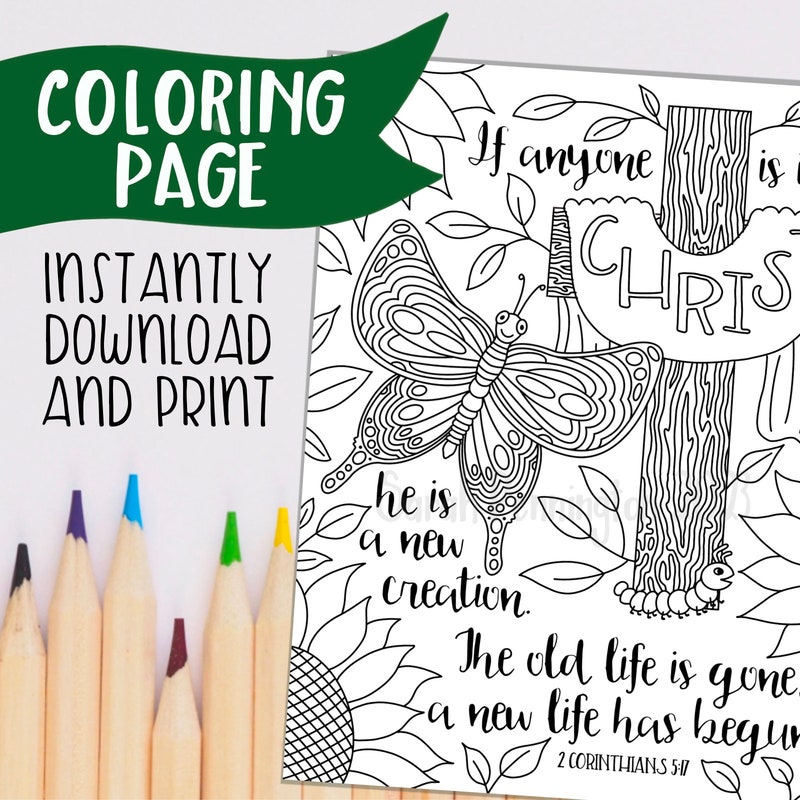 COLORING
PAGE
INSTANTLY
DOWNLOAD
AND PRINT
If anyone is i
CHRIST
he is
a new
creation.
The old life is gone,
a new life has begun
2 CORINTHIANS 5:17